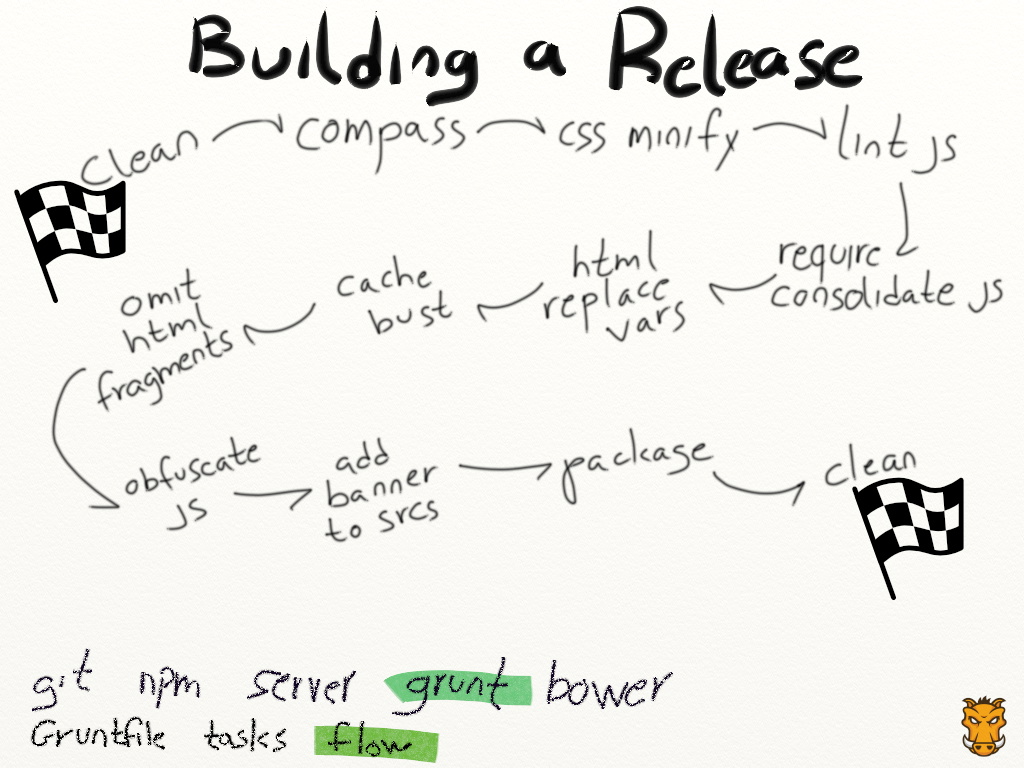 Building a Release
clean compass css minify lint js
require
consolidate js
html
replace
vars
cache
bust
omit
html
fragments
obfuscate
js
add
banner
to srcs
package
clean
git npm server grunt bower
Gruntfile tasks flow